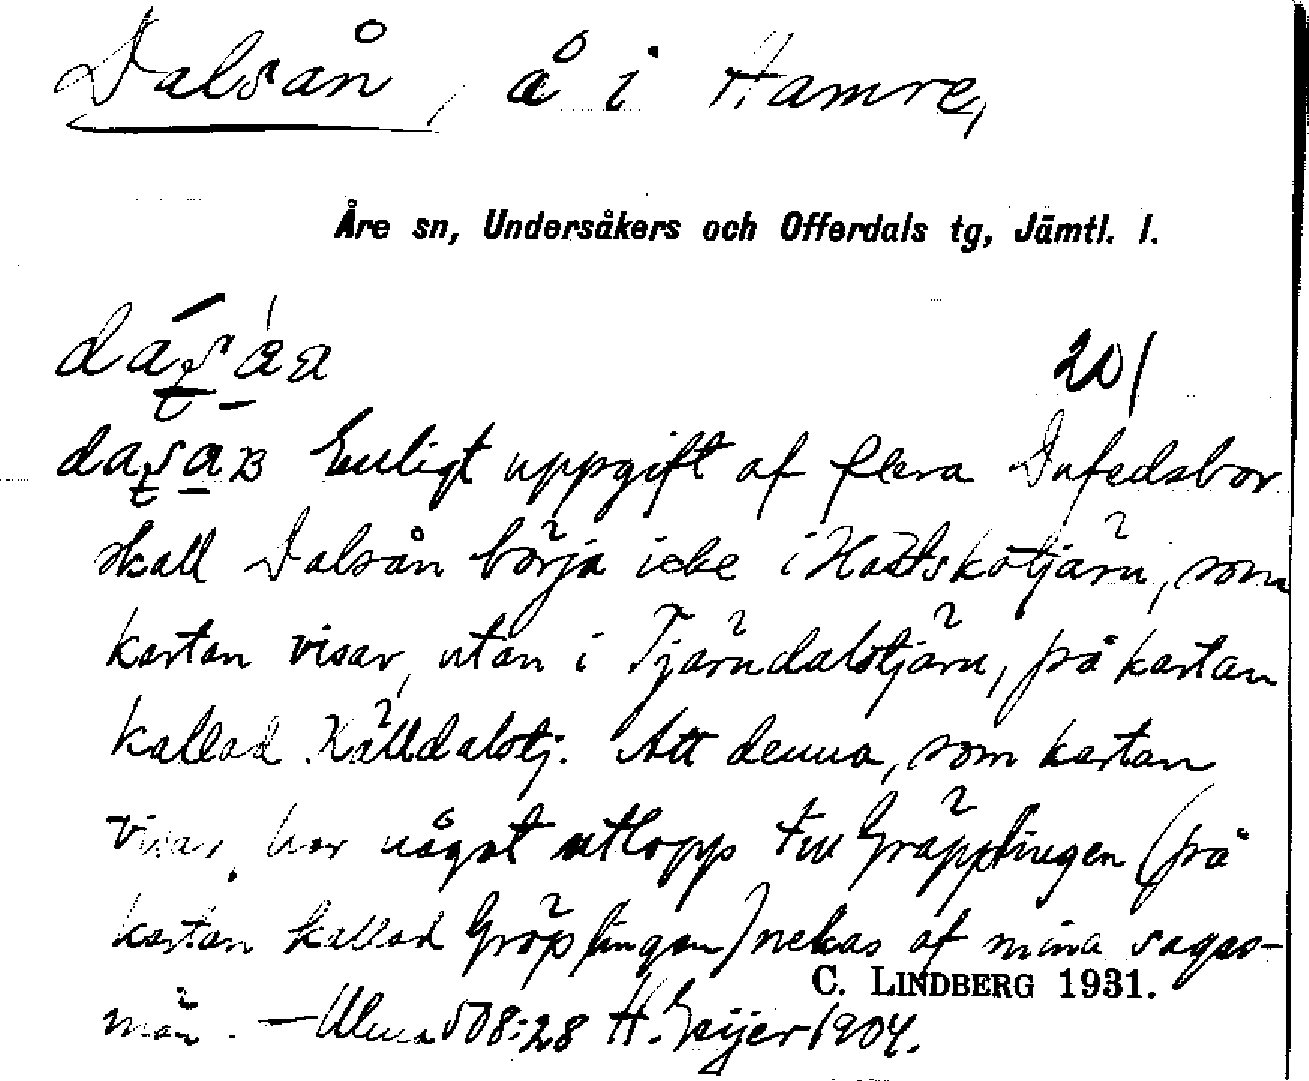 Dalsån, å i Hamre,
Åre sn, Undersåkers och Offerdals tg, Jämtl. l.
20/
Enligt uppgift af flera Dufedsbor
skall Dalsån börja icke i Hottskotjärn, som
kartan visar, utan i Tjärndalstjärn, på kartan
kallad Källdalstj. Att denna, som kartan
visar, har något utlopp till Gräpplingen (på
kartan kallad Gröplingen) nekas af mina sages-
män. – Ulma 508:28 H. Geijer 1904.
C. LINDBERG 1931.